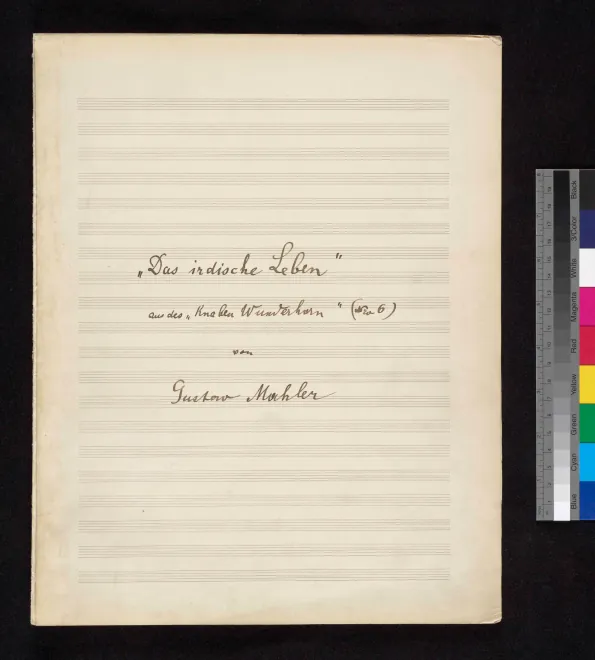 „Das irdische Leben"
aus des „Knaben Wunderhorn" (No 6)
von
Gustav Mahler
Black
3/Color
White
Magenta
Red
Yellow
Green
Cyan
Blue